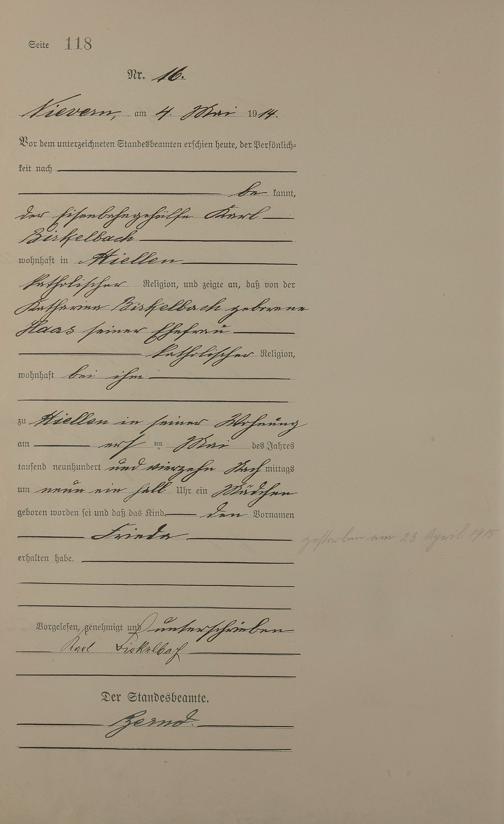 Seite 118
Nr. 16.
Nievern, am 4. Mai 1914.
Vor dem unterzeichneten Standesbeamten erschien heute, der Persönlich-
keit nach
be kannt,
der Eisenbahngehülfe Karl
Birkelbach
wohnhaft in Miellen
katholischer Religion, und zeigte an, daß von der
Katharina Birkelbach geborene
Haas seiner Ehefrau
katholischer Religion,
wohnhaft bei ihm
zu Miellen in seiner Wohnung
am Mai des Jahres
tausend neunhundert und vierzehn Nach mittags
um neun ein halb Uhr ein Mädchen
geboren worden sei und daß das Kind den Vornamen
Frieda
gestorben am 23 April 1915
erhalten habe.
Vorgelesen, genehmigt und unterschrieben
Karl Birkelbach
Der Standesbeamte.